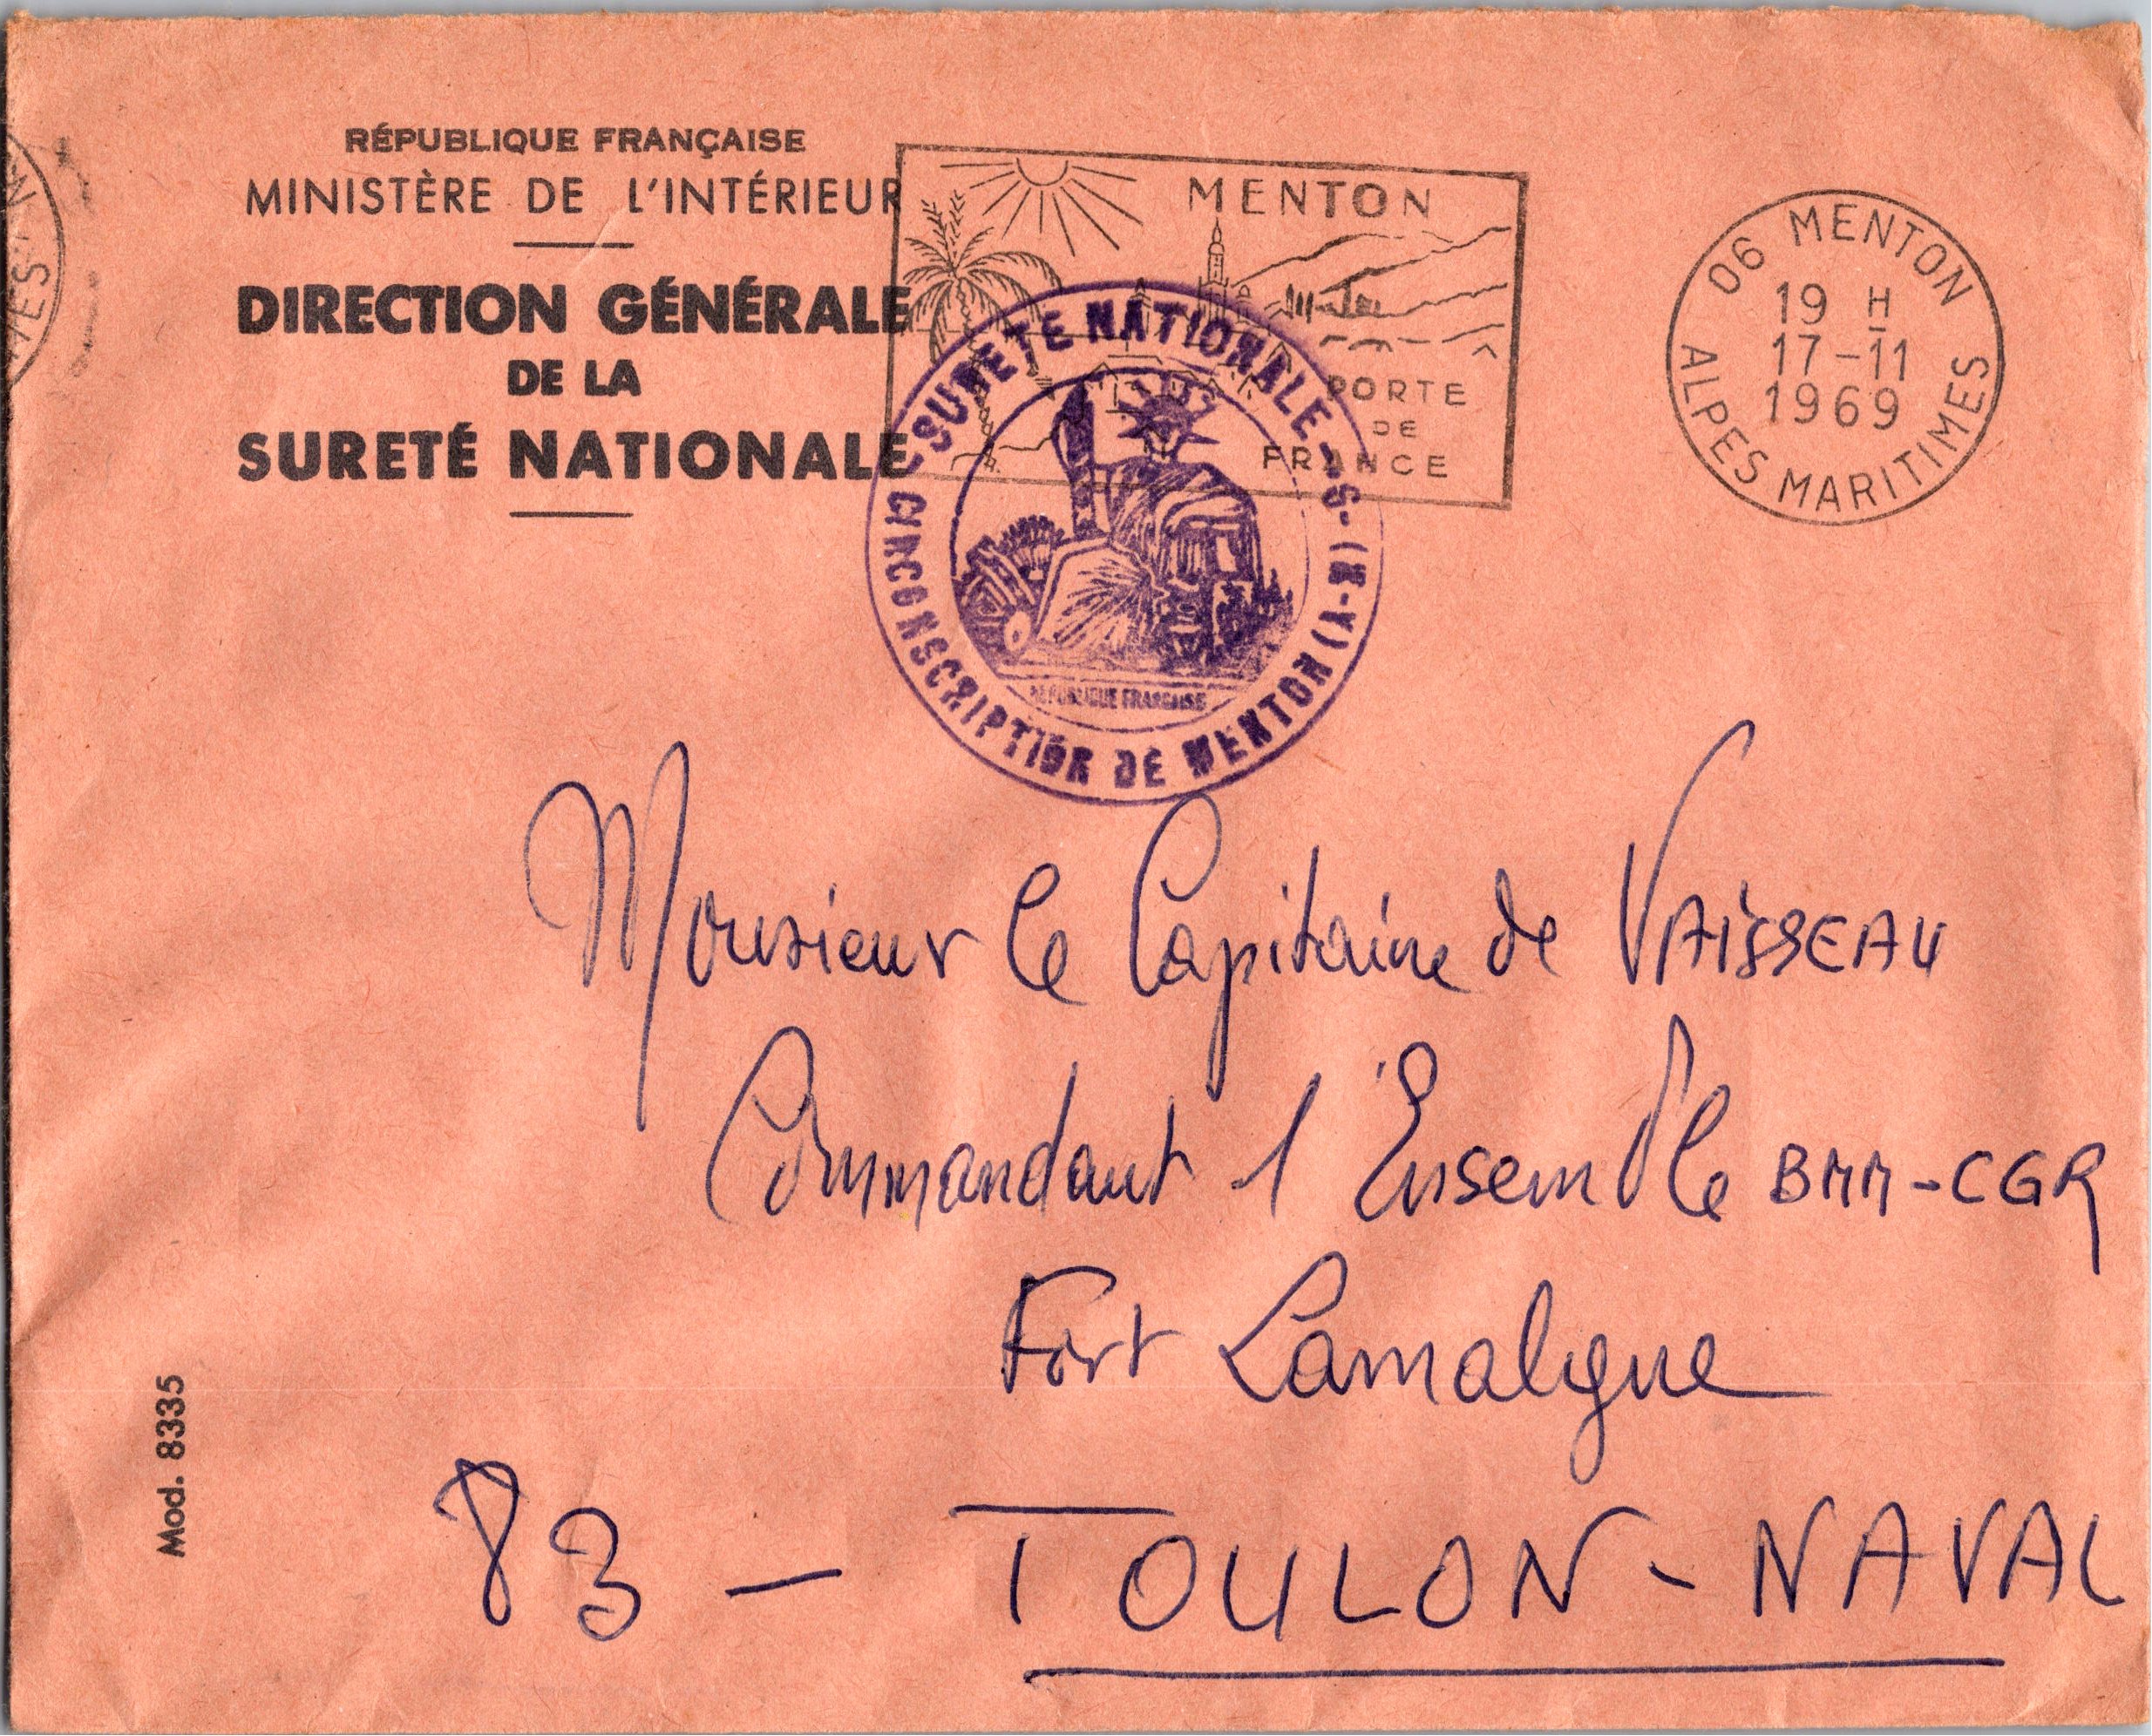 RÉPUBLIQUE FRANÇAISE
MINISTÈRE DE L'INTÉRIEUR
DIRECTION GÉNÉRALE
DE LA
SURETÉ NATIONALE
MENTON
PORTE
DE
FRANCE
06 MENTON
19 H
17-11
1969
ALPES MARITIMES
SURETE NATIONALE
CIRCONSCRIPTION DE MENTON (A-M)
REPUBLIQUE FRANCAISE
Monsieur le Capitaine de VAISSEAU
Commandant l'Ensemble BMM-CGR
Fort Lamalgue
83 - TOULON - NAVAL
Mod. 8335